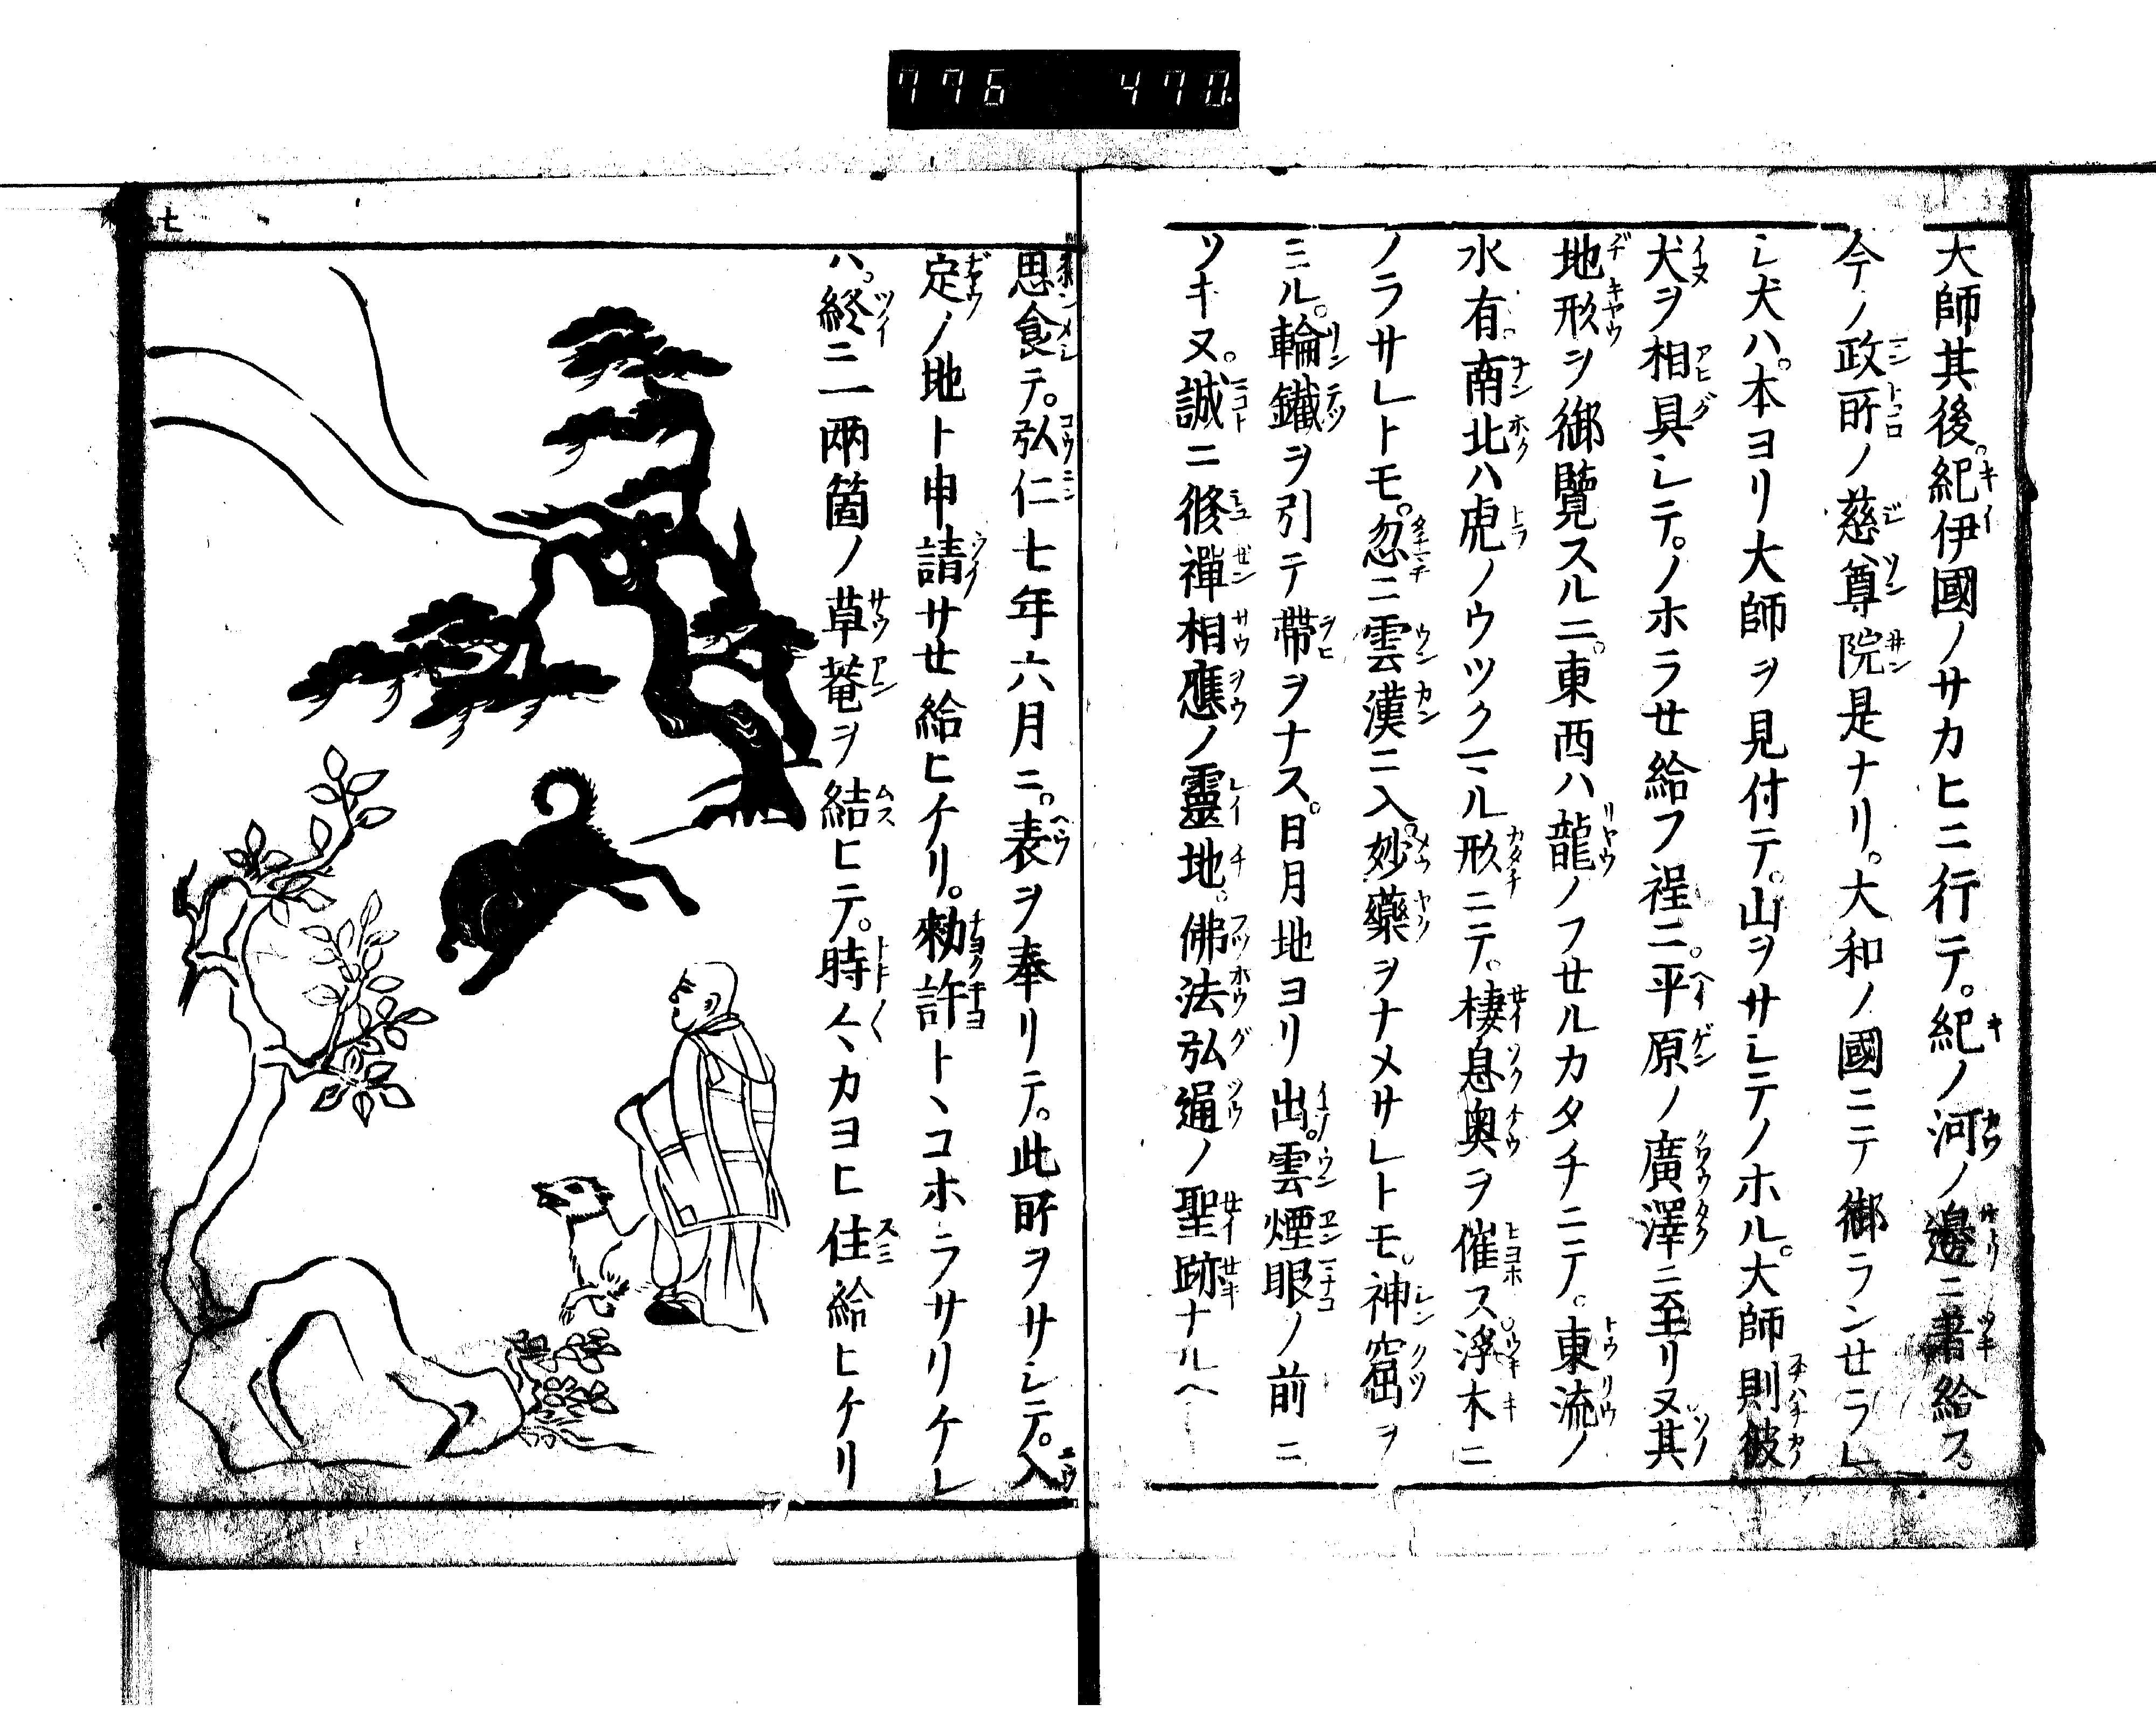 776 470
大師其後。紀伊國ノサカヒニ行テ。紀ノ河ノ邊ニ著給フ。
今ノ政所ノ慈尊院是ナリ。大和ノ國ニテ御ランセラレ
シ犬ハ。本ヨリ大師ヲ見付テ。山ヲサシテノホル。大師則彼
犬ヲ相具シテ。ノホラせ給フ程ニ。平原ノ廣澤ニ至リヌ其
地形ヲ御覽スルニ。東西ハ龍ノフせルカタチニテ。東流ノ
水有。南北ハ虎ノウツクマル形ニテ。棲息奥ヲ催ス。浮木ニ
ノラサレトモ。忽ニ雲漢ニ入。妙藥ヲナメサレトモ。神窟ヲ
ミル。輪鐵ヲ引テ帶ヲナス。日月地ヨリ出。雲煙眼ノ前ニ
ツキヌ。誠ニ修禪相應ノ靈地。佛法弘通ノ聖跡ナルヘ
七
思食テ。弘仁七年六月ニ。表ヲ奉リテ。此所ヲサシテ。入
定ノ地ト申請サせ給ヒケリ。勅許トヽコホラサリケレ
ハ。終ニ一兩箇ノ草菴ヲ結ヒテ。時々カヨヒ住給ヒケリ